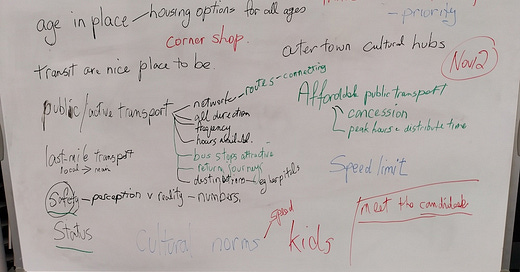 age in place - housing options for all ages
- priority
corner shop.
outer town cultural hubs
Nov/2
transit are nice place to be.
public/active transport
network - routes - connecting
all direction
frequency
hours available.
bus stops attractive
return journeys
destinations - eg hospitals
Affordable public transport
concession
peak hours - distribute time
last-mile transport
local → main
Speed limit
Safety - perception v reality - numbers.
Status
Cultural norms
speed
kids
meet the candidate